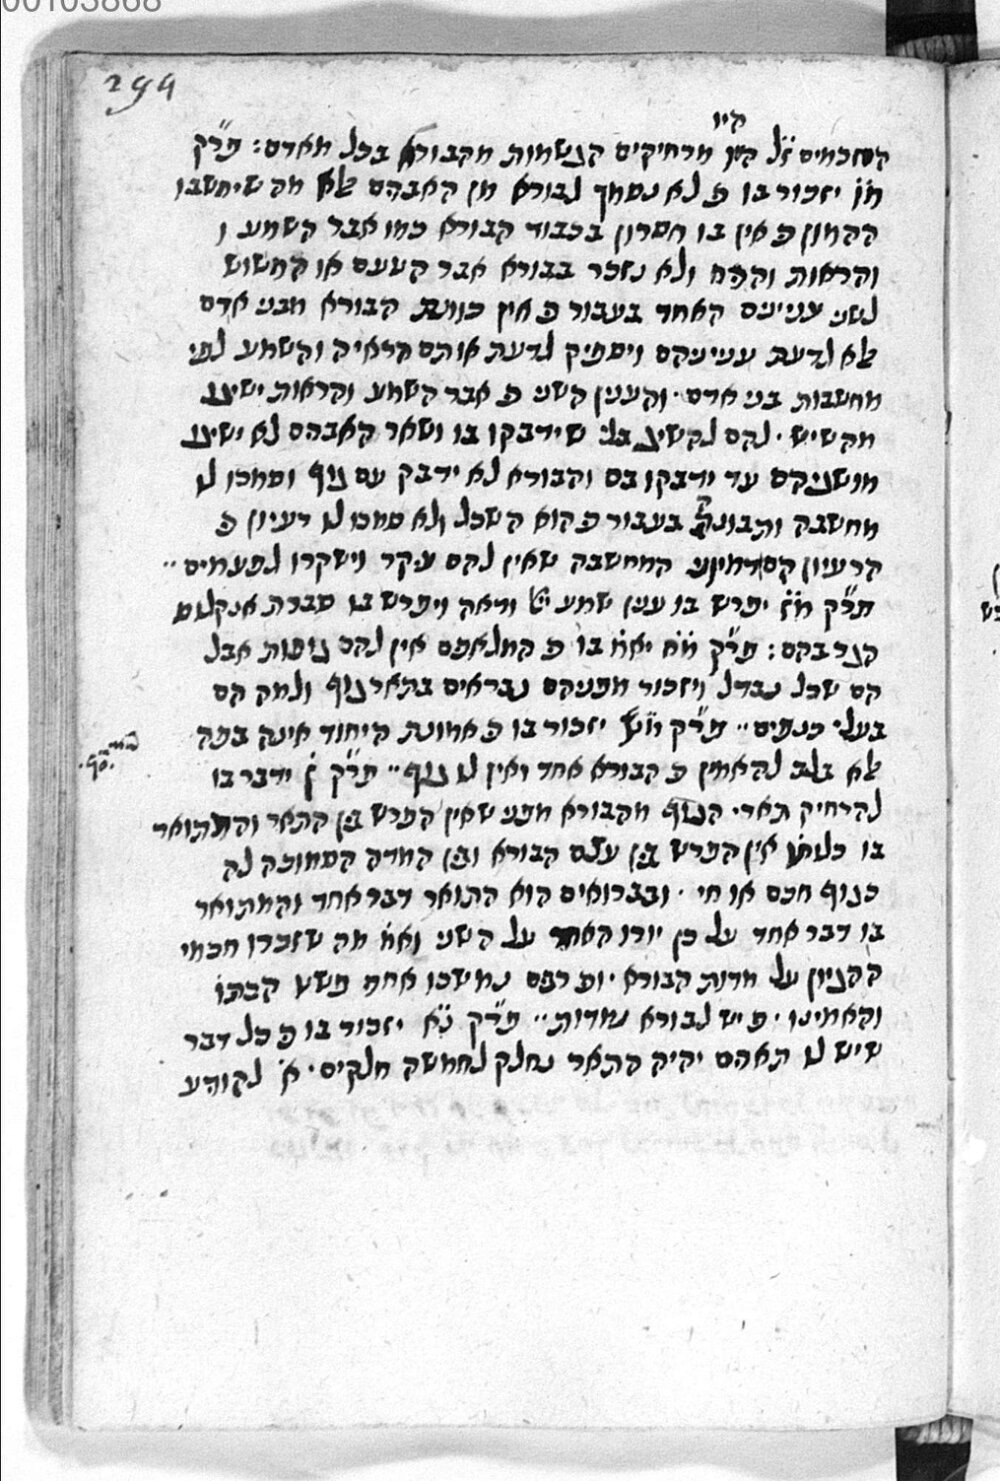 00103868
294
היו
החכמים ז״ל היו מרחיקים הגשמות מהבורא בכל מאדם: פר״ק
מ״ו יזכור בו כי לא נסמך לבורא מן האברים אלא מה שיחשבו
ההמון כי אין בו חסרון בכבוד הבורא כמו אבר השמע ו
והראות והריח ולא נזכר בבורא אבר הטעם או המשוש
לשני עניינים האחד בעבור כי אין כוונת הבורא מבני אדם
אלא לדעת עניניהם ויספיק לדעת אותם הראיה והשמע לפי
מחשבות בני אדם. והענין השני כי אבר השמע והראות ישיגו
מה שיש. להם להשיג בלי שידבקו בו ושאר האברים לא ישיגו
מושגיהם עד ידבקו בם והבורא לא ידבק עם גוף וסמכו לו
מחשבה ותבונה בעבור כי הוא השכל ולא סמכו לו רעיון כי
הרעיון הם המחשבה שאין להם עיקר וישקרו לפעמים״
פר״ק מ״ז יפרש בו ענין שמע וראה ויפרש בו סברת אנקלוס
הנר בהם: פר״ק מ״ח יאמ׳ בו כי המלאכים אין להם גופות אבל
הם שכל נבדל ויזכור מפניהם נבראים בתאר גוף ולמה הם
בעלי כנפים״ פר״ק מ״ט יזכור בו כי אמונת היחוד אינה בפה
אלא בלב להאמין כי הבורא אחד ואין לו גוף״ פר״ק נ׳ ידבר בו
להרחיק תאר. הגוף מהבורא מפני שאין הפרש בין התאר והמתואר
בו כלומ׳ אין הפרש בין עצם הבורא ובין המדה הסמוכה לה
כגוף חכם או חי. ובברואים הוא התואר דבר אחד והמתואר
בו דבר אחד על כן יורו האחד על השני ואמ׳ מה שזכרו חכמי
ההגיון על מדות הבורא. ופרפס נמשכו אחר פשט הכתו׳
והאמינו. כי יש לבורא מדות״ פר״ק נ״א יזכור בו כי כל דבר
שיש לו תארים יהיה התאר נחלק לחמשה חלקים. א׳ להודיע